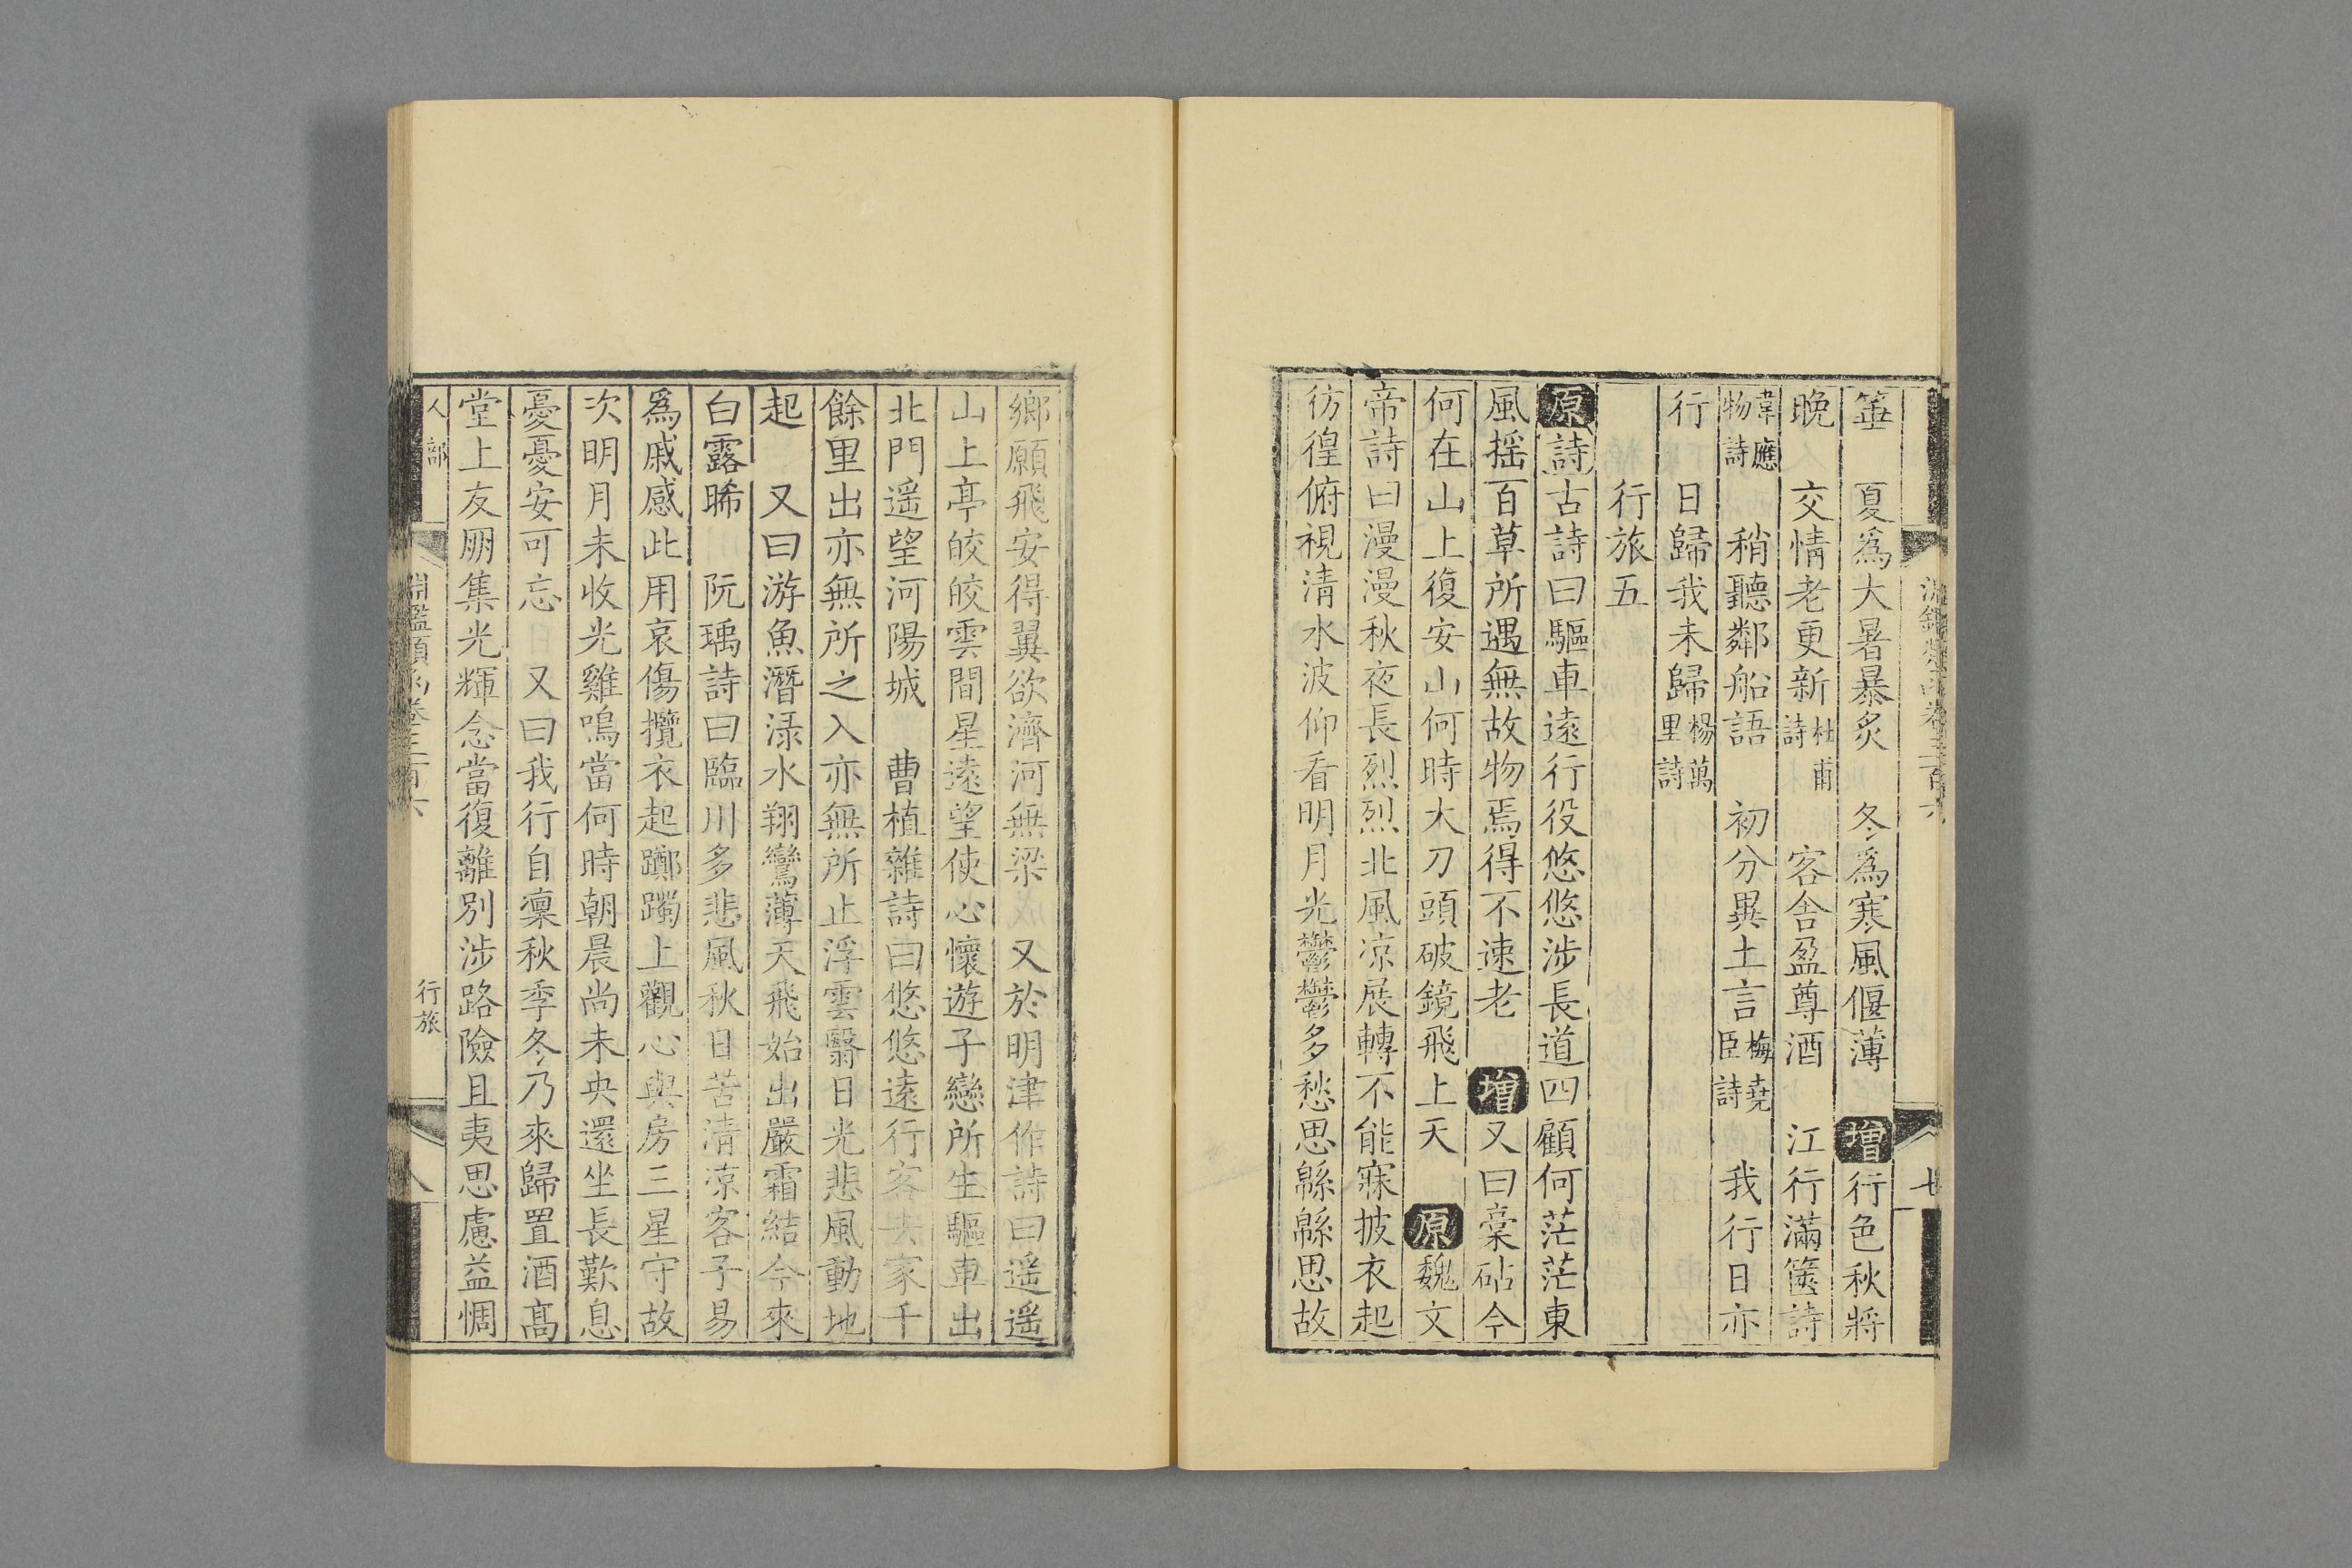 箠　夏爲大暑暴炙　冬爲寒風偃薄　增行色秋將
晚　交情老更新杜甫詩　客舍盈尊酒　江行滿篋詩
韋應物詩　稍聽鄰船語　初分異土言梅堯臣詩　我行日亦
行　日歸我未歸楊萬里詩
行旅五
原詩古詩曰驅車遠行役悠悠涉長道四顧何茫茫東
風摇百草所遇無故物焉得不速老　增又曰稾砧今
何在山上復安山何時大刀頭破鏡飛上天　原魏文
帝詩曰漫漫秋夜長烈烈北風凉展轉不能寐披衣起
彷徨俯視清水波仰看明月光鬱鬱多愁思緜緜思故
鄉願飛安得翼欲濟河無梁　又於明津作詩曰遥遥
山上亭皎皎雲間星遠望使心懷遊子戀所生驅車出
北門遥望河陽城　曹植雜詩曰悠悠遠行客去家千
餘里出亦無所之入亦無所止浮雲翳日光悲風動地
起　又曰游魚潛渌水翔鸞薄天飛始出嚴霜結今來
白露晞　阮瑀詩曰臨川多悲風秋日苦清凉客子易
爲戚感此用哀傷攬衣起躑躅上觀心與房三星守故
次明月未收光雞鳴當何時朝晨尚未央還坐長歎息
憂憂安可忘　又曰我行自凜秋季冬乃來歸置酒高
堂上友朋集光輝念當復離別涉路險且夷思慮益惆
人部　淵鑑類函卷三百六　行旅　八